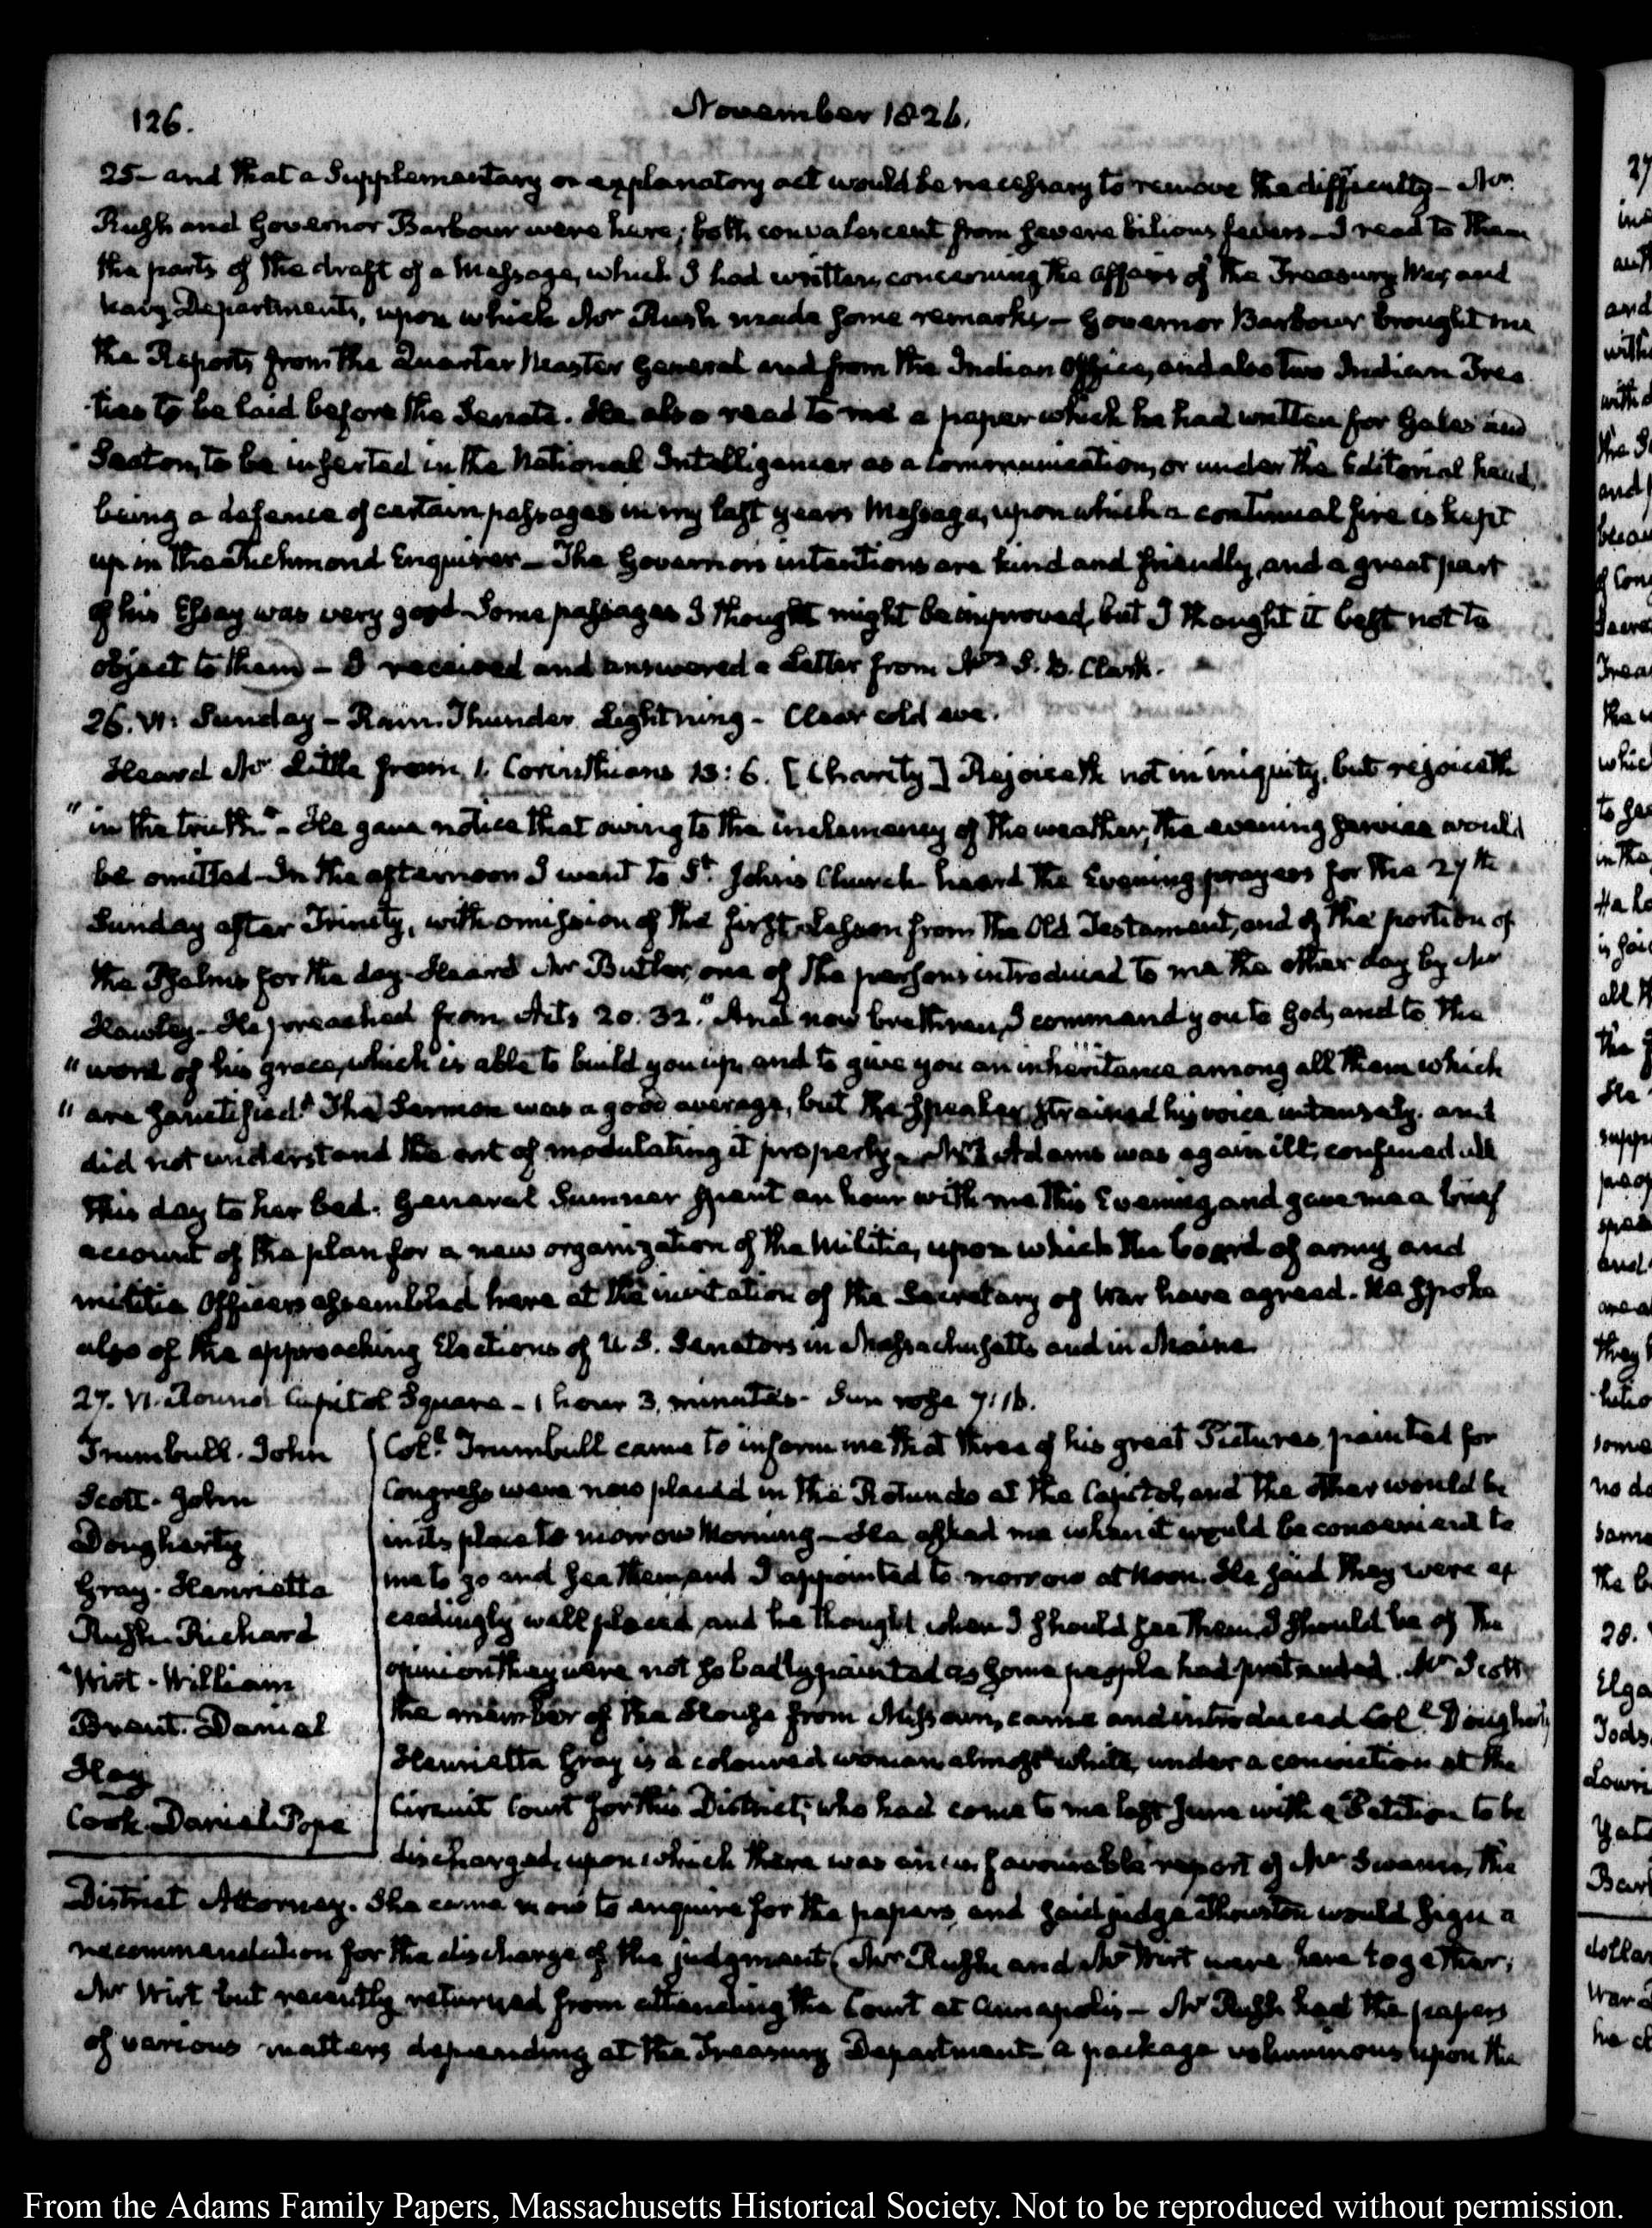 126.
November 1826.
25- and that a Supplementary or explanatory act would be necessary to remove the difficulty- Mr.
Rush and Governor Barbour were here; both convalescent from severe bilious fevers- I read to them
the parts of the draft of a Message, which I had written, concerning the affairs of the Treasury War, and
Navy Departments, upon which Mr Rush made some remarks- Governor Barbour brought me
the Reports from the Quarter Master General and from the Indian Office, and also two Indian Trea
ties to be laid before the Senate. He also read to me a paper which he had written for Gales and
Seaton, to be inserted in the National Intelligencer as a Communication, or under the Editorial head,
being a defence of certain passages in my last years Message, upon which a continual fire is kept
up in the Richmond Enquirer- The Governors intentions are kind and friendly, and a great part
of his Essay was very good- Some passages I thought might be improved, but I thought it best not to
object to them- I received and answered a Letter from Mrs S. B. Clark.
26. VI: Sunday- Rain. Thunder. Lightning- Clear cold eve.
Heard Mr Little from 1. Corinthians 13: 6. [Charity] Rejoiceth not in iniquity, but rejoiceth
"in the truth."- He gave notice that owing to the inclemency of the weather, the evening service would
be omitted- In the afternoon I went to St. John's Church- heard the Evening prayers for the 27th
Sunday after Trinity, with omission of the first Lesson from the Old Testament, and of the portion of
the Psalms for the day- Heard Mr Butler, one of the persons introduced to me the other day by Mr
Hawley- He preached from Acts 20. 32. "And now brethren, I commend you to God, and to the
"word of his grace, which is able to build you up, and to give you an inheritance among all them which
"are sanctified." The Sermon was a good average, but the Speaker strained his voice intensely. and
did not understand the art of modulating it properly- Mrs Adams was again ill; confined all
this day to her bed. General Sumner spent an hour with me this Evening, and gave me a brief
account of the plan for a new organization of the Militia, upon which the board of army and
militia Officers assembled here at the invitation of the Secretary of War have agreed. He spoke
also of the approaching Elections of U. S. Senators in Massachusetts and in Maine.
27. VI. Round Capitol Square- 1 hour 3. minutes- Sun rose 7:16.
Trumbull. John
Scott- John
Dougherty
Gray- Henrietta
Rush- Richard
Wirt- William
Brent. Daniel
Hay
Cook- Daniel Pope
Coll. Trumbull came to inform me that three of his great Pictures, painted for
Congress were now placed in the Rotundo at the Capitol, and the other would be
in its place to morrow Morning- He asked me when it would be convenient to
me to go and see them, and I appointed to morrow at Noon. He said they were ex
ceedingly well placed, and he thought when I should see them, I should be of the
opinion they were not so badly painted as some people had pretended. Mr Scott
the member of the House from Missouri, came and introduced Coll. Dougherty
Henrietta Gray is a coloured woman almost white, under a conviction at the
Circuit Court for this District, who had come to me last June with a Petition to be
discharged, upon which there was an unfavourable report of Mr Swann, the
District Attorney. She came now to enquire for the papers, and said judge Thruston would sign a
recommendation for the discharge of the judgment. Mr Rush and Mr Wirt were here together;
Mr Wirt but recently returned from attending the Court at Annapolis- Mr Rush had the papers
of various matters depending at the Treasury Department- a package voluminous upon the
From the Adams Family Papers, Massachusetts Historical Society. Not to be reproduced without permission.